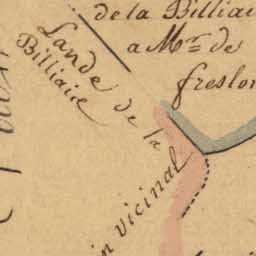 de la Billiai
a Mr. de
freslon
Lande de la
Billiaie
in vicinal